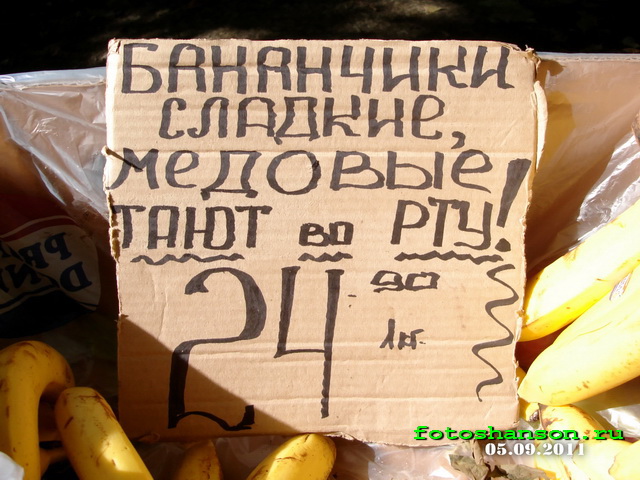 БАНАНЧИКИ
СЛАДКИЕ,
МЕДОВЫЕ
ТАЮТ ВО РТУ!
24 90
1кг.
fotoshanson.ru
05.09.2011